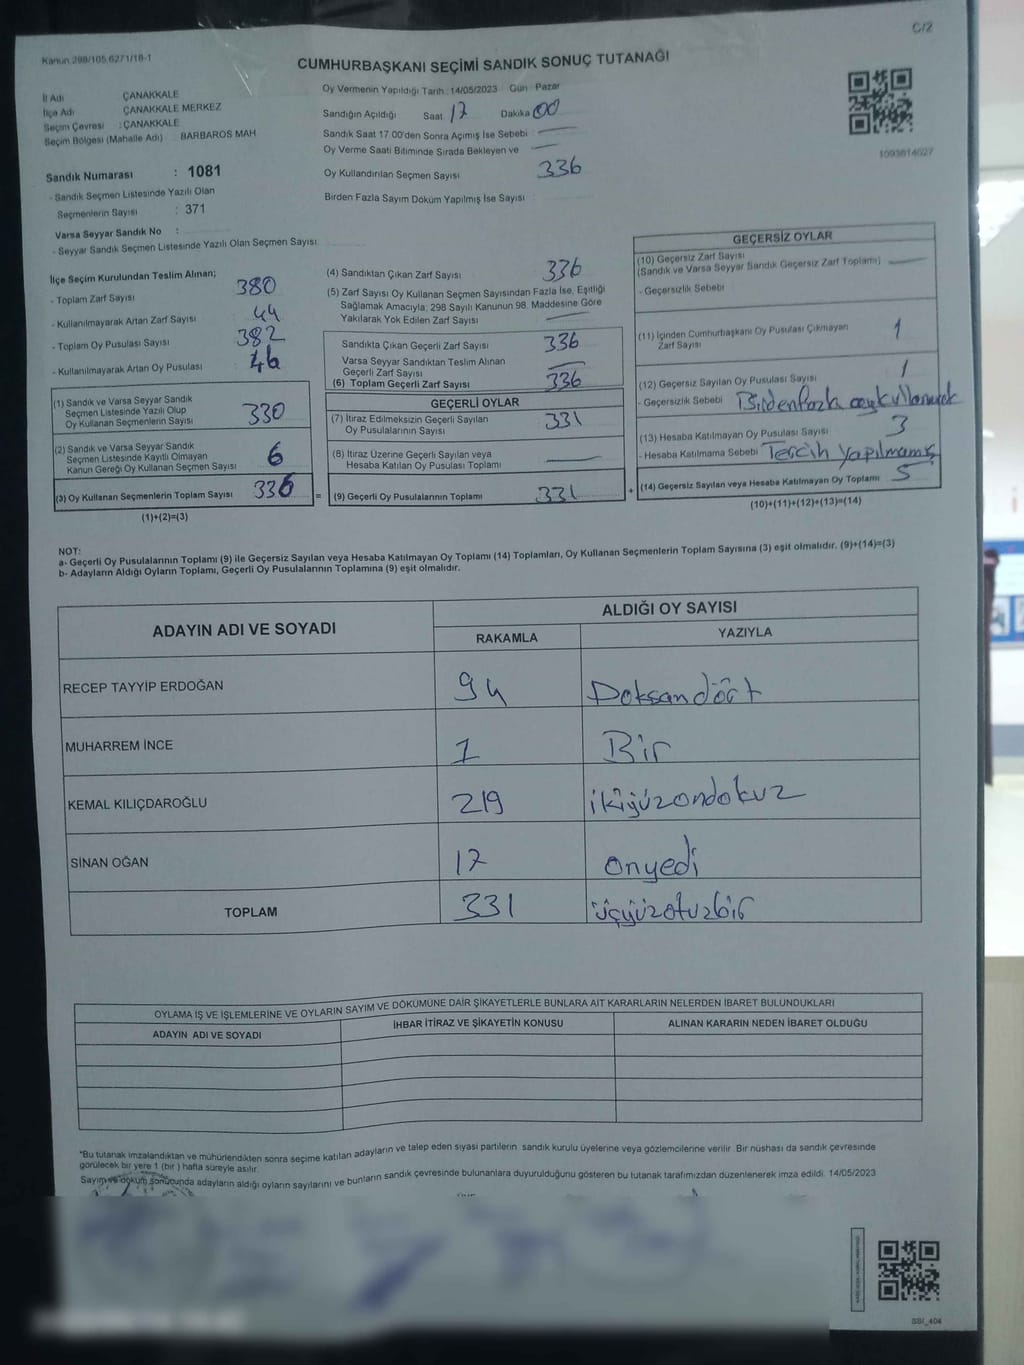 C/2
Kanun 298/105,6271/18-1
CUMHURBAŞKANI SEÇİMİ SANDIK SONUÇ TUTANAĞI
İl Adı ÇANAKKALE
İlçe Adı ÇANAKKALE MERKEZ
Seçim Çevresi : ÇANAKKALE
Seçim Bölgesi (Mahalle Adı) BARBAROS MAH
Sandık Numarası : 1081
- Sandık Seçmen Listesinde Yazılı Olan
Seçmenlerin Sayısı : 371
Varsa Seyyar Sandık No :
- Seyyar Sandık Seçmen Listesinde Yazılı Olan Seçmen Sayısı
Oy Vermenin Yapıldığı Tarih :14/05/2023 Gün : Pazar
Sandığın Açıldığı Saat 17 Dakika 00
Sandık Saat 17.00'den Sonra Açımış İse Sebebi
Oy Verme Saati Bitiminde Sırada Bekleyen ve
Oy Kullandırılan Seçmen Sayısı 336
Birden Fazla Sayım Döküm Yapılmış İse Sayısı
1093614027
İlçe Seçim Kurulundan Teslim Alınan;
- Toplam Zarf Sayısı 380
- Kullanılmayarak Artan Zarf Sayısı 44
- Toplam Oy Pusulası Sayısı 382
- Kullanılmayarak Artan Oy Pusulası 46
(1) Sandık ve Varsa Seyyar Sandık
Seçmen Listesinde Yazılı Olup
Oy Kullanan Seçmenlerin Sayısı 330
(2) Sandık ve Varsa Seyyar Sandık
Seçmen Listesinde Kayıtlı Olmayan
Kanun Gereği Oy Kullanan Seçmen Sayısı 6
(3) Oy Kullanan Seçmenlerin Toplam Sayısı 336
(1)+(2)=(3)
(4) Sandıktan Çıkan Zarf Sayısı 336
(5) Zarf Sayısı Oy Kullanan Seçmen Sayısından Fazla İse, Eşitliği
Sağlamak Amacıyla; 298 Sayılı Kanunun 98. Maddesine Göre
Yakılarak Yok Edilen Zarf Sayısı
Sandıkta Çıkan Geçerli Zarf Sayısı 336
Varsa Seyyar Sandıktan Teslim Alınan
Geçerli Zarf Sayısı
(6) Toplam Geçerli Zarf Sayısı 336
GEÇERLİ OYLAR
(7) İtiraz Edilmeksizin Geçerli Sayılan
Oy Pusulalarının Sayısı 331
(8) İtiraz Üzerine Geçerli Sayılan veya
Hesaba Katılan Oy Pusulası Toplamı
= (9) Geçerli Oy Pusulalarının Toplamı 331 +
GEÇERSİZ OYLAR
(10) Geçersiz Zarf Sayısı
(Sandık ve Varsa Seyyar Sandık Geçersiz Zarf Toplamı)
- Geçersizlik Sebebi
(11) İçinden Cumhurbaşkanı Oy Pusulası Çıkmayan
Zarf Sayısı 1
(12) Geçersiz Sayılan Oy Pusulası Sayısı 1
- Geçersizlik Sebebi Birden fazla oy kullanmak
(13) Hesaba Katılmayan Oy Pusulası Sayısı 3
- Hesaba Katılmama Sebebi Tercih Yapılmamış
(14) Geçersiz Sayılan veya Hesaba Katılmayan Oy Toplamı 5
(10)+(11)+(12)+(13)=(14)
NOT:
a- Geçerli Oy Pusulalarının Toplamı (9) ile Geçersiz Sayılan veya Hesaba Katılmayan Oy Toplamı (14) Toplamları, Oy Kullanan Seçmenlerin Toplam Sayısına (3) eşit olmalıdır. (9)+(14)=(3)
b- Adayların Aldığı Oyların Toplamı, Geçerli Oy Pusulalarının Toplamına (9) eşit olmalıdır.
ADAYIN ADI VE SOYADI ALDIĞI OY SAYISI
RAKAMLA YAZIYLA
RECEP TAYYİP ERDOĞAN 94 Doksandört
MUHARREM İNCE 1 Bir
KEMAL KILIÇDAROĞLU 219 ikiyüzondokuz
SİNAN OĞAN 17 onyedi
TOPLAM 331 üçyüzotuzbir
OYLAMA İŞ VE İŞLEMLERİNE VE OYLARIN SAYIM VE DÖKÜMÜNE DAİR ŞİKAYETLERLE BUNLARA AİT KARARLARIN NELERDEN İBARET BULUNDUKLARI
ADAYIN ADI VE SOYADI İHBAR İTİRAZ VE ŞİKAYETİN KONUSU ALINAN KARARIN NEDEN İBARET OLDUĞU
*Bu tutanak imzalandıktan ve mühürlendikten sonra seçime katılan adayların ve talep eden siyasi partilerin sandık kurulu üyelerine veya gözlemcilerine verilir. Bir nüshası da sandık çevresinde
görülecek bir yere 1 (bir ) hafta süreyle asılır.
Sayım ve döküm sonucunda adayların aldığı oyların sayılarını ve bunların sandık çevresinde bulunanlara duyurulduğunu gösteren bu tutanak tarafımızdan düzenlenerek imza edildi. 14/05/2023
SBI_404